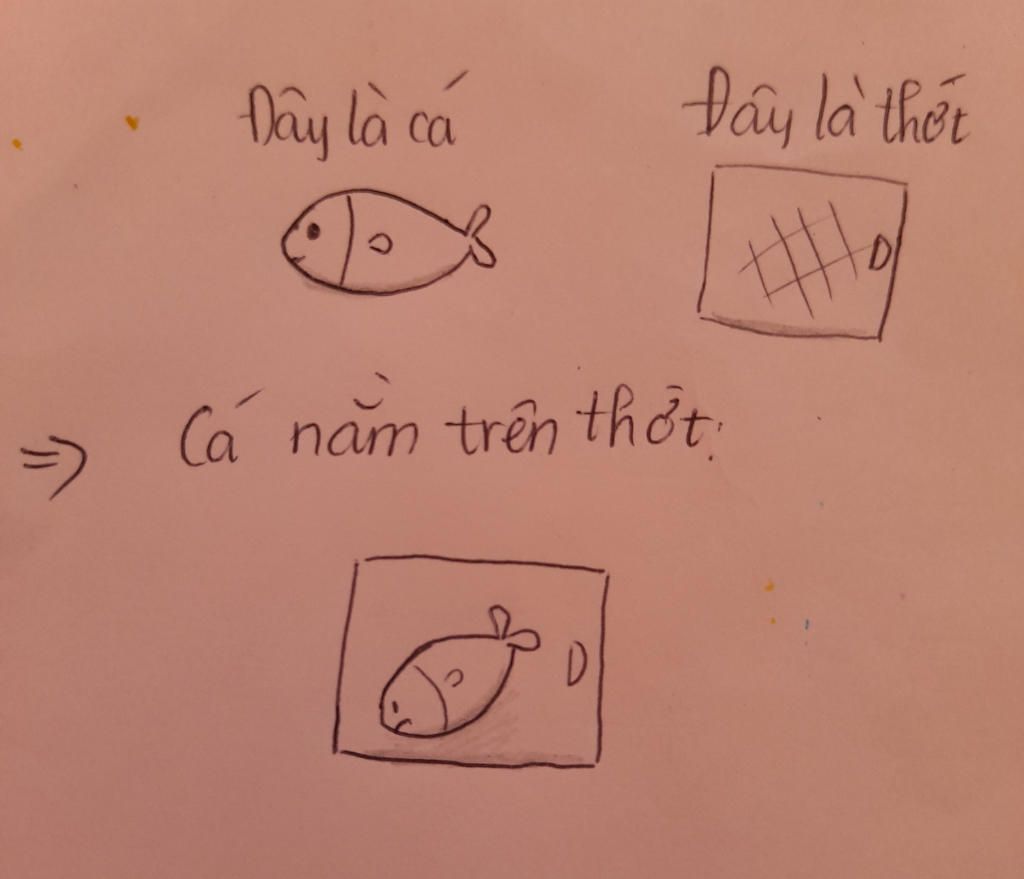 Đây là cá
Đây là thớt
=> Cá nằm trên thớt.